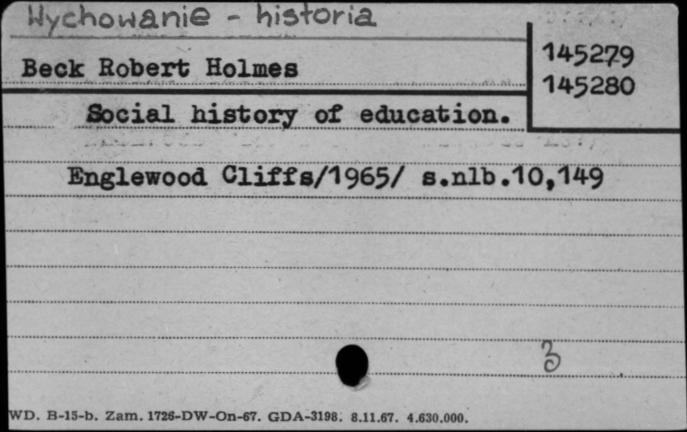 Wychowanie - historia
145279
Beck Robert Holmes
145280
Social history of education.
Englewood Cliffs/1965/ s.nlb.10,149
3
WD. B-15-b. Zam. 1726-DW-On-67. GDA-3198. 8.11.67. 4.630.000.